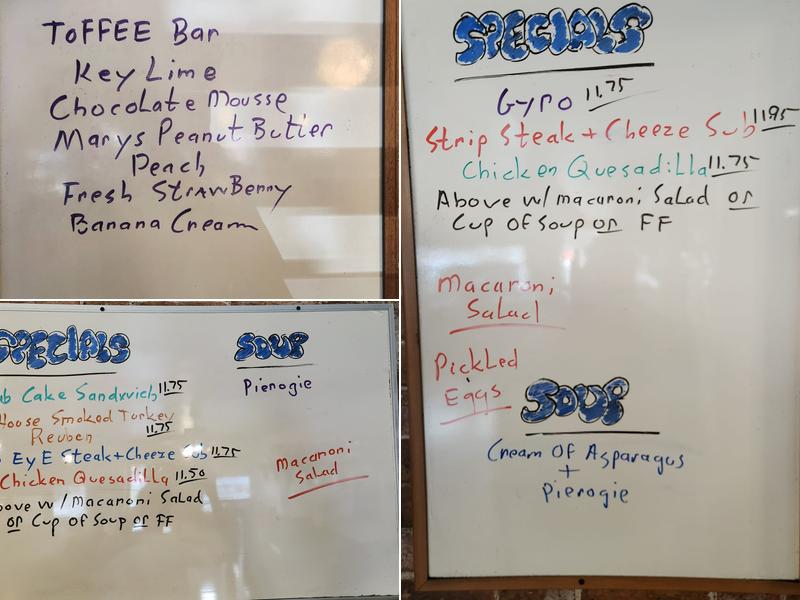 TOFFEE Bar
Key Lime
Chocolate Mousse
Marys Peanut Butter
Peach
Fresh StrawBerry
Banana Cream
SPECIALS
Gyro 11.75
Strip Steak + Cheeze Sub 11.95
Chicken Quesadilla 11.75
Above w/ macaroni Salad or
Cup Of Soup or FF
Macaroni
Salad
Pickled
Eggs
SOUP
Cream Of Asparagus
+
Pierogie
SPECIALS
Cake Sandwich 11.75
House Smoked Turkey
Reuben 11.75
EyE Steak + Cheeze Sub 11.75
Chicken Quesadilla 11.50
w/ Macaroni Salad
or Cup of Soup or FF
SOUP
Pierogie
Macaroni
Salad